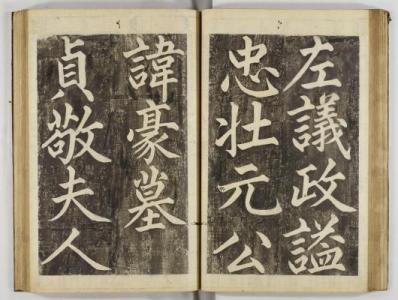 左議政謚
忠壯元公
諱豪墓
貞敬夫人